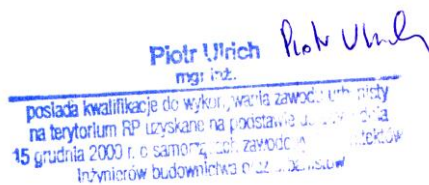 Piotr Ulrich
mgr inż.
posiada kwalifikacje do wykonywania zawodu urbanisty
na terytorium RP uzyskane na podstawie
15 grudnia 2000 r. o samorządach zawodowych
inżynierów budownictwa oraz urbanistów